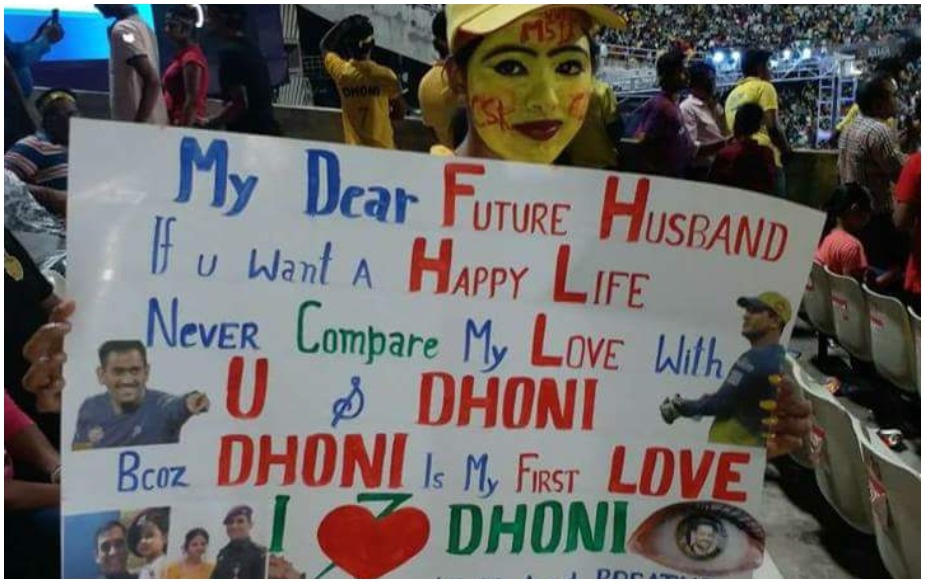 MSD
CSK
DHONI
7
My Dear FUTURE HUSBAND
If u Want A HAPPY LIFE
NEVER Compare My LOVE With
U & DHONI
Bcoz DHONI Is My FIRST LOVE
I 7 DHONI